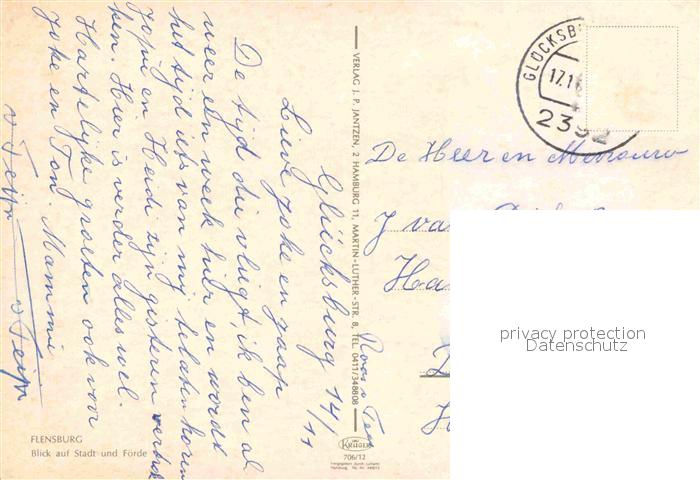 Glücksburg 14/11
Lieve Joke en Jaap
De tijd die vliegt, ik ben al
weer een week hier en wordt
het tijd iets van mij te laten horen
Jopie en Heidi zijn gisteren vertrok
ken. Hier is verder alles wel.
Hartelijke groeten ook voor
Joke en Ton. Mammi
FLENSBURG
Blick auf Stadt und Förde
VERLAG J. P. JANTZEN, 2 HAMBURG 11, MARTIN-LUTHER-STR. 8, TEL 0411/348808
KRÜGER
706/12
GLÜCKSB
17.1
2392
De Heer en Mevrouw
J van
Ha
privacy protection
Datenschutz